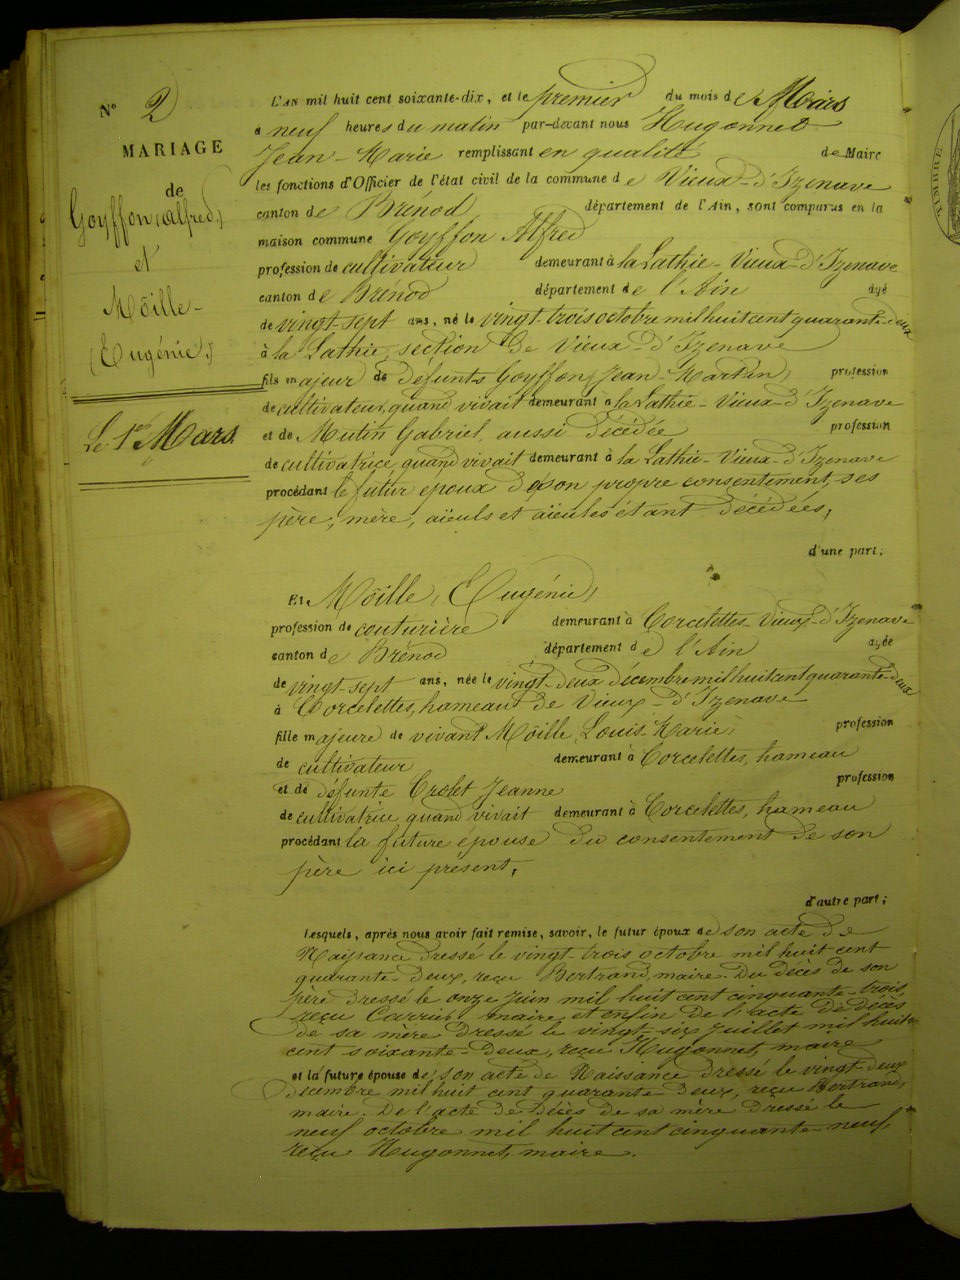 N° 2
MARIAGE
de
Goyffon (alfred)
et
Möille -
(Eugénie)
Le 1er Mars.
L'AN mil huit cent soixante-dix, et le premier du mois de Mars
a neuf heures du matin par-devant nous Hugonnet
Jean-Marie remplissant en qualité de Maire
les fonctions d'Officier de l'état civil de la commune de Vieux-d'Izenave
canton de Brénod département de l'Ain, sont comparus en la
maison commune Goyffon Alfred
profession de cultivateur demeurant à la Lathie-Vieux-d'Izenave
canton de Brénod département de l'Ain âgé
de vingt-sept ans, né le vingt-trois octobre mil huit cent quarante-deux
à la Lathie, section de Vieux d'Izenave
fils majeur de défunts Goyffon, Jean-Martin, profession
de cultivateur, quand vivait demeurant à la Lathie-Vieux-d'Izenave
et de Mutin Gabriel, aussi décédée profession
de cultivatrice, quand vivait demeurant à la Lathie-Vieux-d'Izenave
procédant le futur époux de son propre consentement, ses
père, mère, aïeuls et aïeules étant décédées,
d'une part;
Et Möille, Eugénie,
profession de couturière demeurant à Corcelettes Vieux-d'Izenave
canton de Brénod département de l'Ain âgée
de vingt-sept ans, née le vingt-deux décembre mil huit cent quarante-deux
à Corcelettes, hameau de Vieux-d'Izenave
fille majeure de vivant Möille, Louis-Marie, profession
de cultivateur demeurant à Corcelettes, hameau
et de défunte Crolet Jeanne profession
de cultivatrice, quand vivait demeurant à Corcelettes, hameau
procédant la future épouse du consentement de son
père ici présent,
d'autre part;
Lesquels, après nous avoir fait remise, savoir, le futur époux de son acte de
Naissance dressé le vingt-trois octobre mil huit cent
quarante-deux, reçu Bertrand, maire. Du décès de son
père dressé le onze Juin mil huit cent cinquante-trois,
reçu Carrier, maire, et enfin de l'acte de décès
de sa mère dressé le vingt-six Juillet mil huit
cent soixante-deux, reçu Hugonnet, maire
et la future épouse de son acte de Naissance dressé le vingt-deux
décembre mil huit cent quarante deux, reçu Bertrand,
maire. De l'acte de décès de sa mère dressé le
neuf octobre mil huit cent cinquante-neuf,
reçu Hugonnet, maire.
TIMBRE